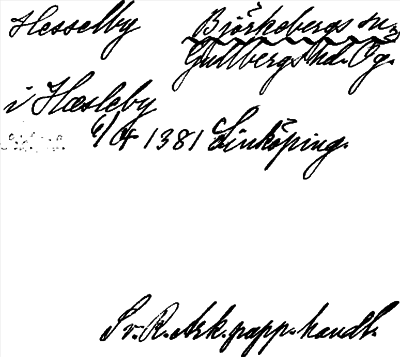 Hesselby Björkebergs sn.
Gullbergs hd. Ög.
i Hæsleby
6/4 1381 Linköping.
Sv. R. Ark. papp. handl.